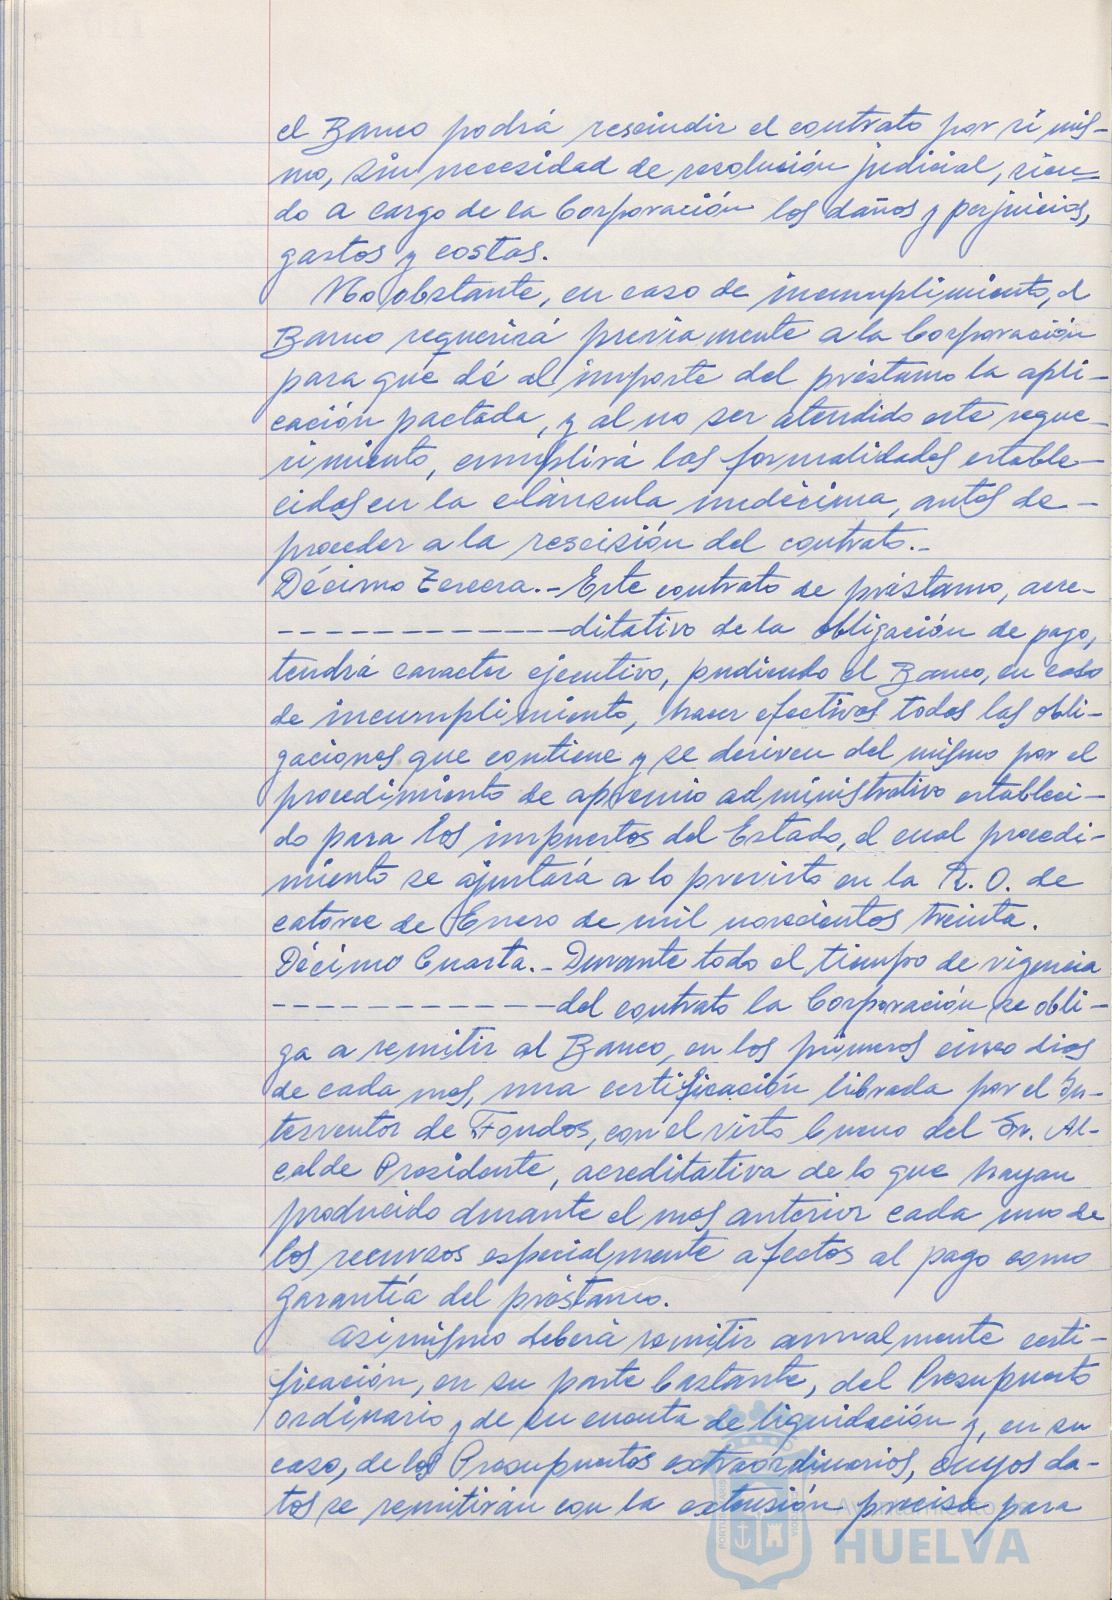 el Banco podrá rescindir el contrato por si mis-
mo, sin necesidad de resolución judicial, sien-
do a cargo de la Corporación los daños y perjuicios,
gastos y costas.
No obstante, en caso de incumplimiento, el
Banco requerirá previamente a la Corporación
para que dé al importe del préstamo la apli-
cación pactada, y al no ser atendido este reque-
rimiento, cumplirá las formalidades estable-
cidas en la cláusula undécima, antes de -
proceder a la rescisión del contrato.-
Décimo Tercera.- Este contrato de préstamo, acre-
-------------ditativo de la obligación de pago,
tendrá caracter ejecutivo, pudiendo el Banco, en caso
de incumplimiento, hacer efectivos todas las obli-
gaciones que contiene y se deriven del mismo por el
procedimiento de apremio administrativo estableci-
do para los impuestos del Estado, el cual procedi-
miento se ajustará a lo previsto en la R. O. de
catorce de Enero de mil novecientos treinta.
Décimo Cuarta.- Durante todo el tiempo de vigencia
------------del contrato la Corporación se obli-
ga a remitir al Banco, en los primeros cinco dias
de cada mes, una certificación librada por el In-
terventor de Fondos, con el visto bueno del Sr. Al-
calde Presidente, acreditativa de lo que hayan
producido durante el mes anterior cada uno de
los recursos especialmente afectos al pago como
garantía del préstamo.
Asimismo deberá remitir anualmente certi-
ficación, en su parte bastante, del Presupuesto
ordinario y de su cuenta de liquidación y, en su
caso, de los Presupuestos extraordinarios, cuyos da-
tos se remitirán con la extensión precisa para
Ayuntamiento
HUELVA